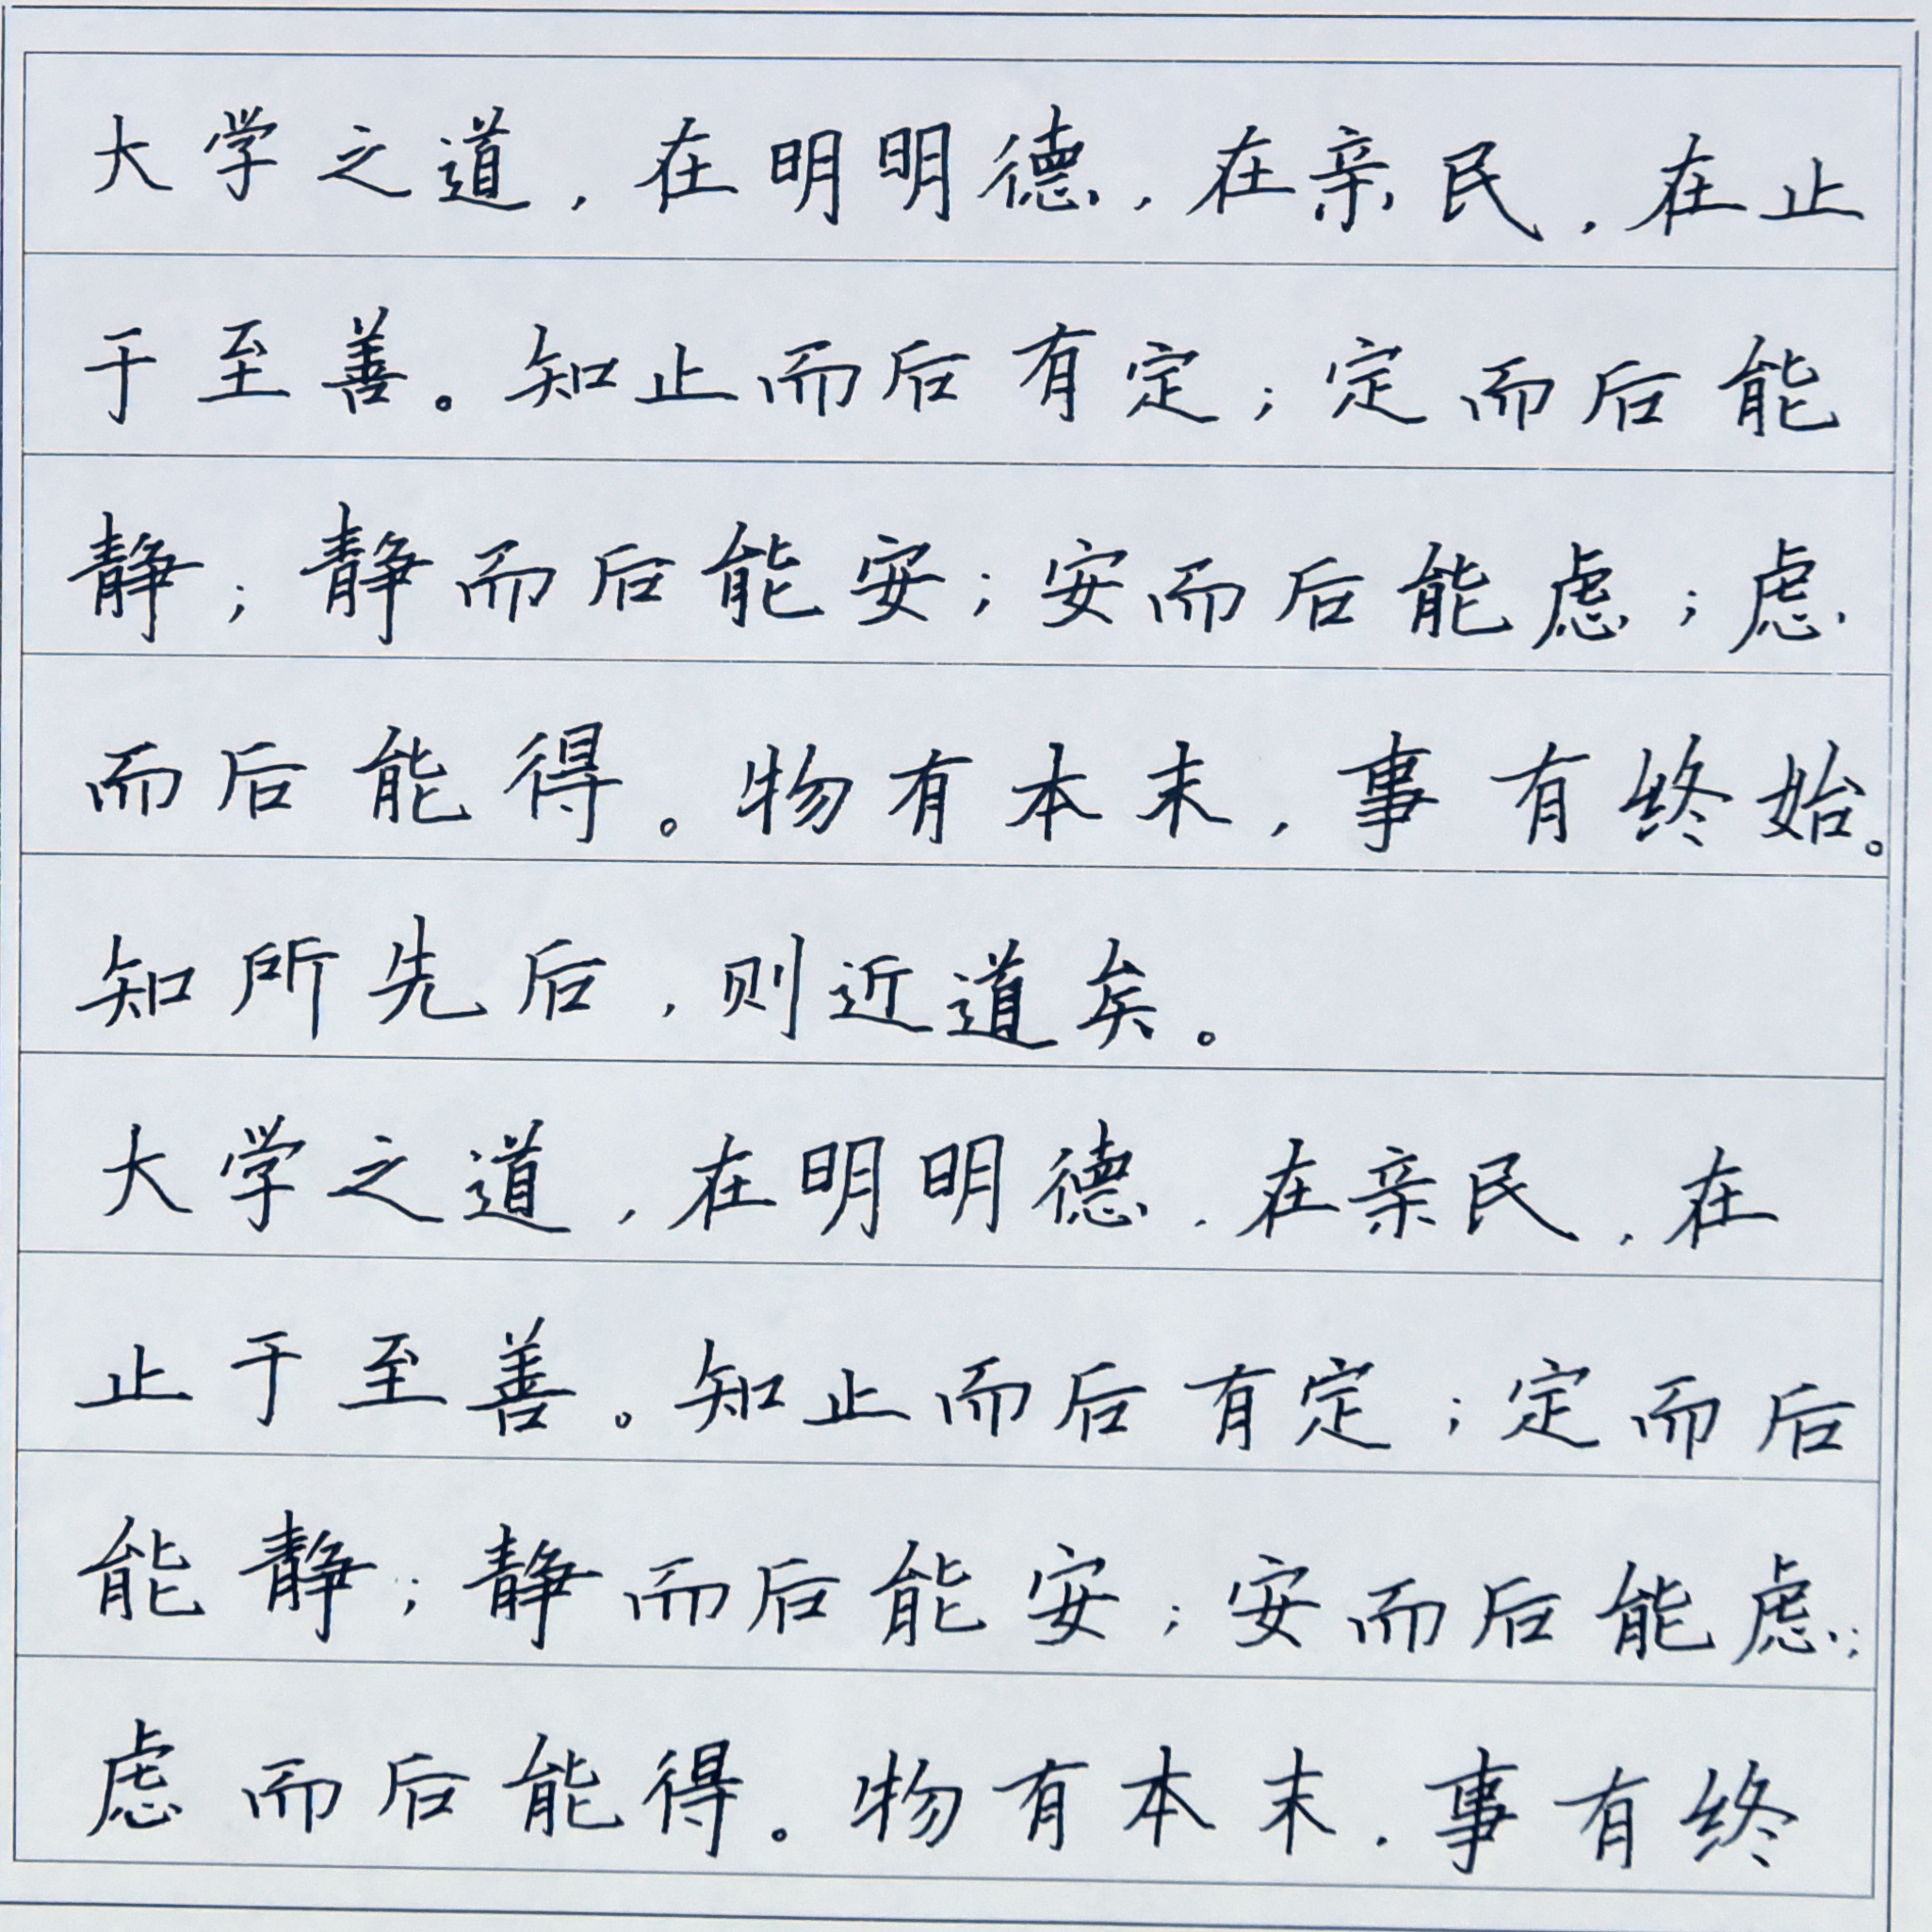 大学之道，在明明德，在亲民，在止
于至善。知止而后有定；定而后能
静；静而后能安；安而后能虑；虑
而后能得。物有本末，事有终始。
知所先后，则近道矣。
大学之道，在明明德，在亲民，在
止于至善。知止而后有定；定而后
能静；静而后能安；安而后能虑；
虑而后能得。物有本末，事有终